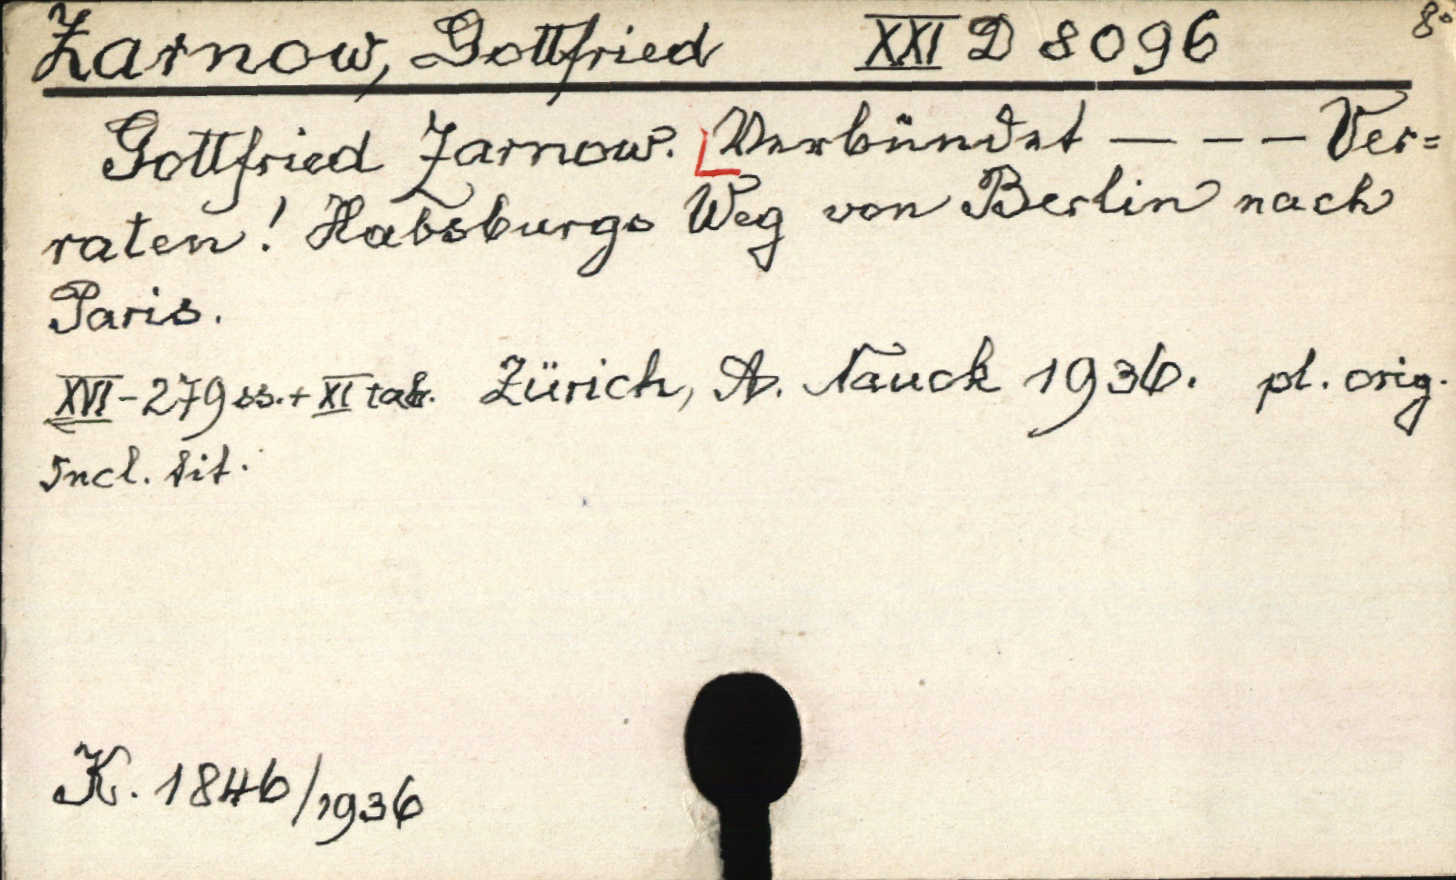 Zarnow, Gottfried XXI D 8096 8°
Gottfried Zarnow. Verbündet — – – Ver=
raten! Habsburgs Weg von Berlin nach
Paris.
XVI-279 ss.+ XI tab. Zürich, A. Nauck 1936. pl. orig.
Incl. tit.
K. 1846/1936